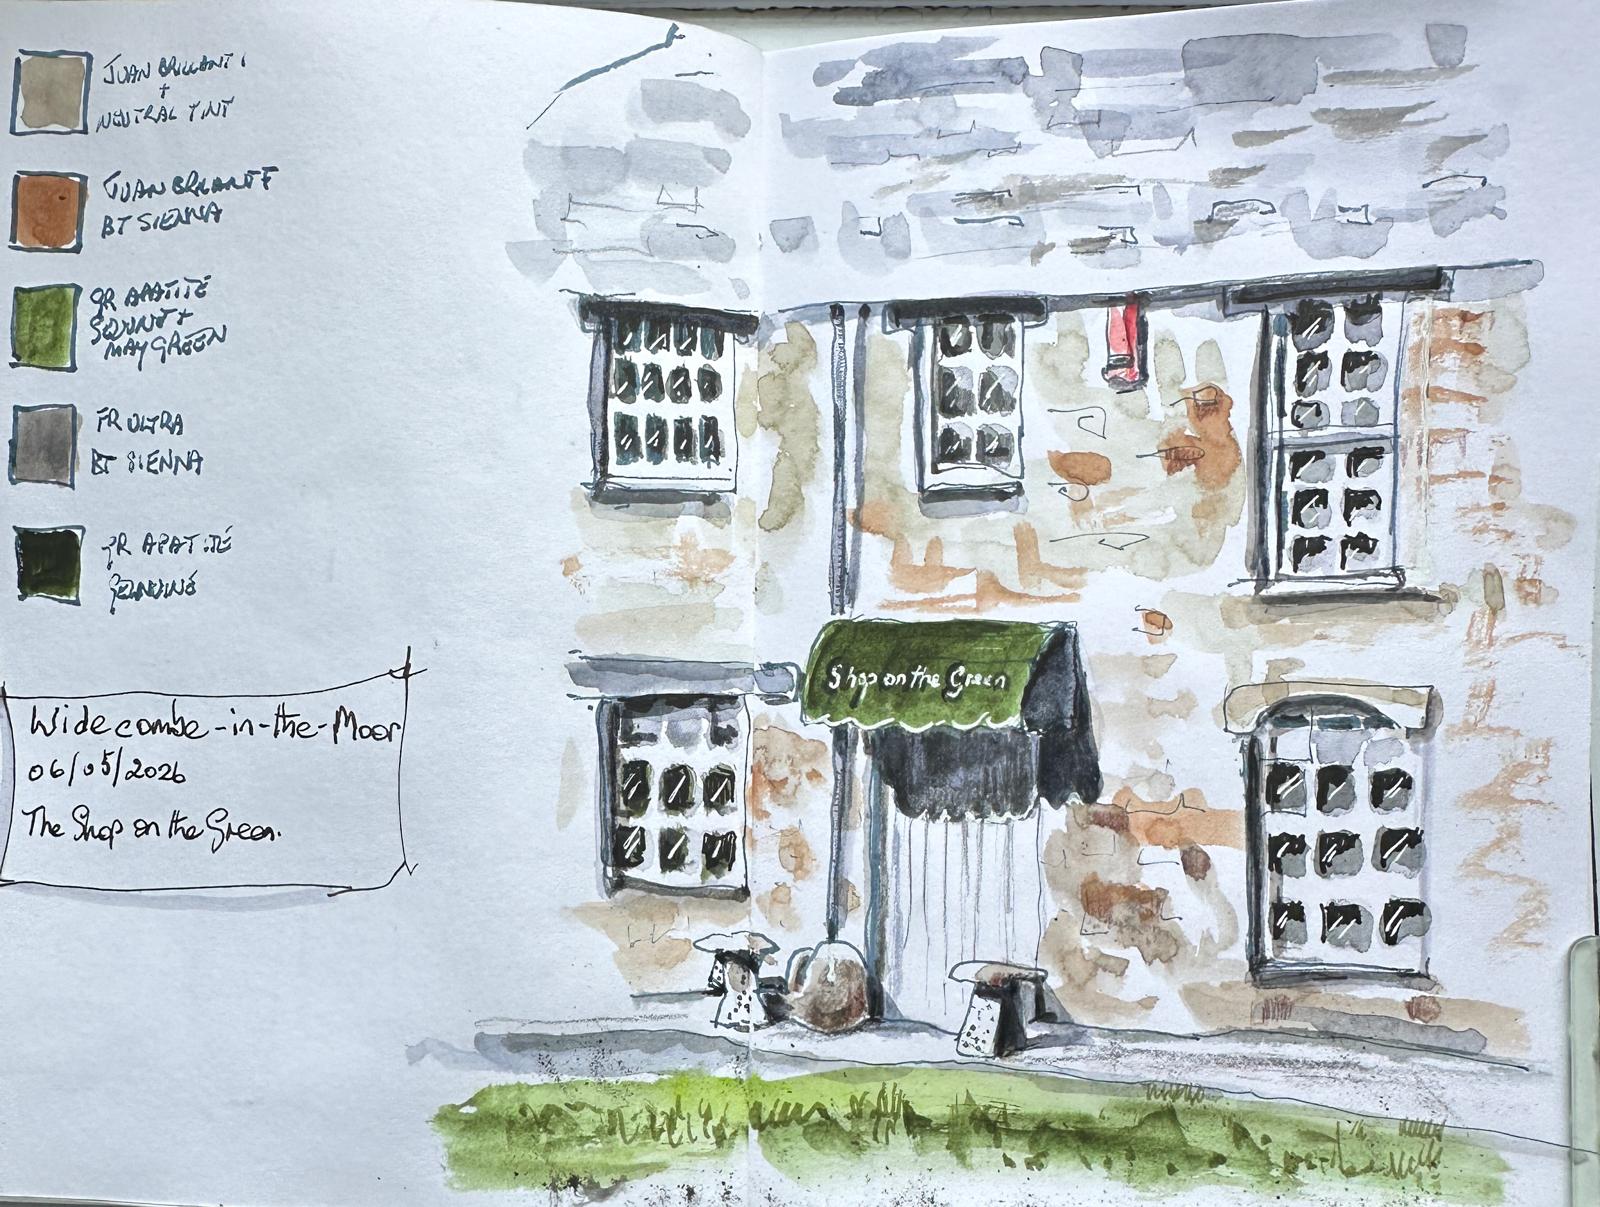 JUAN BRILLANT
+
NEUTRAL TINT
JUAN BRILLANTE
BT SIENNA
GR APATITE
GENUINE +
MAY GREEN
FR ULTRA
BT SIENNA
GR APATITE
GENUINE
Widecombe-in-the-Moor
06/05/2026
The Shop on the Green.
Shop on the Green